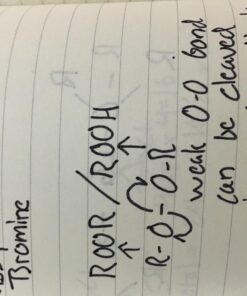 Bromine
ROOR / ROOH
↑ ↑
R-O-O-R
weak O-O bond
can be cleaved